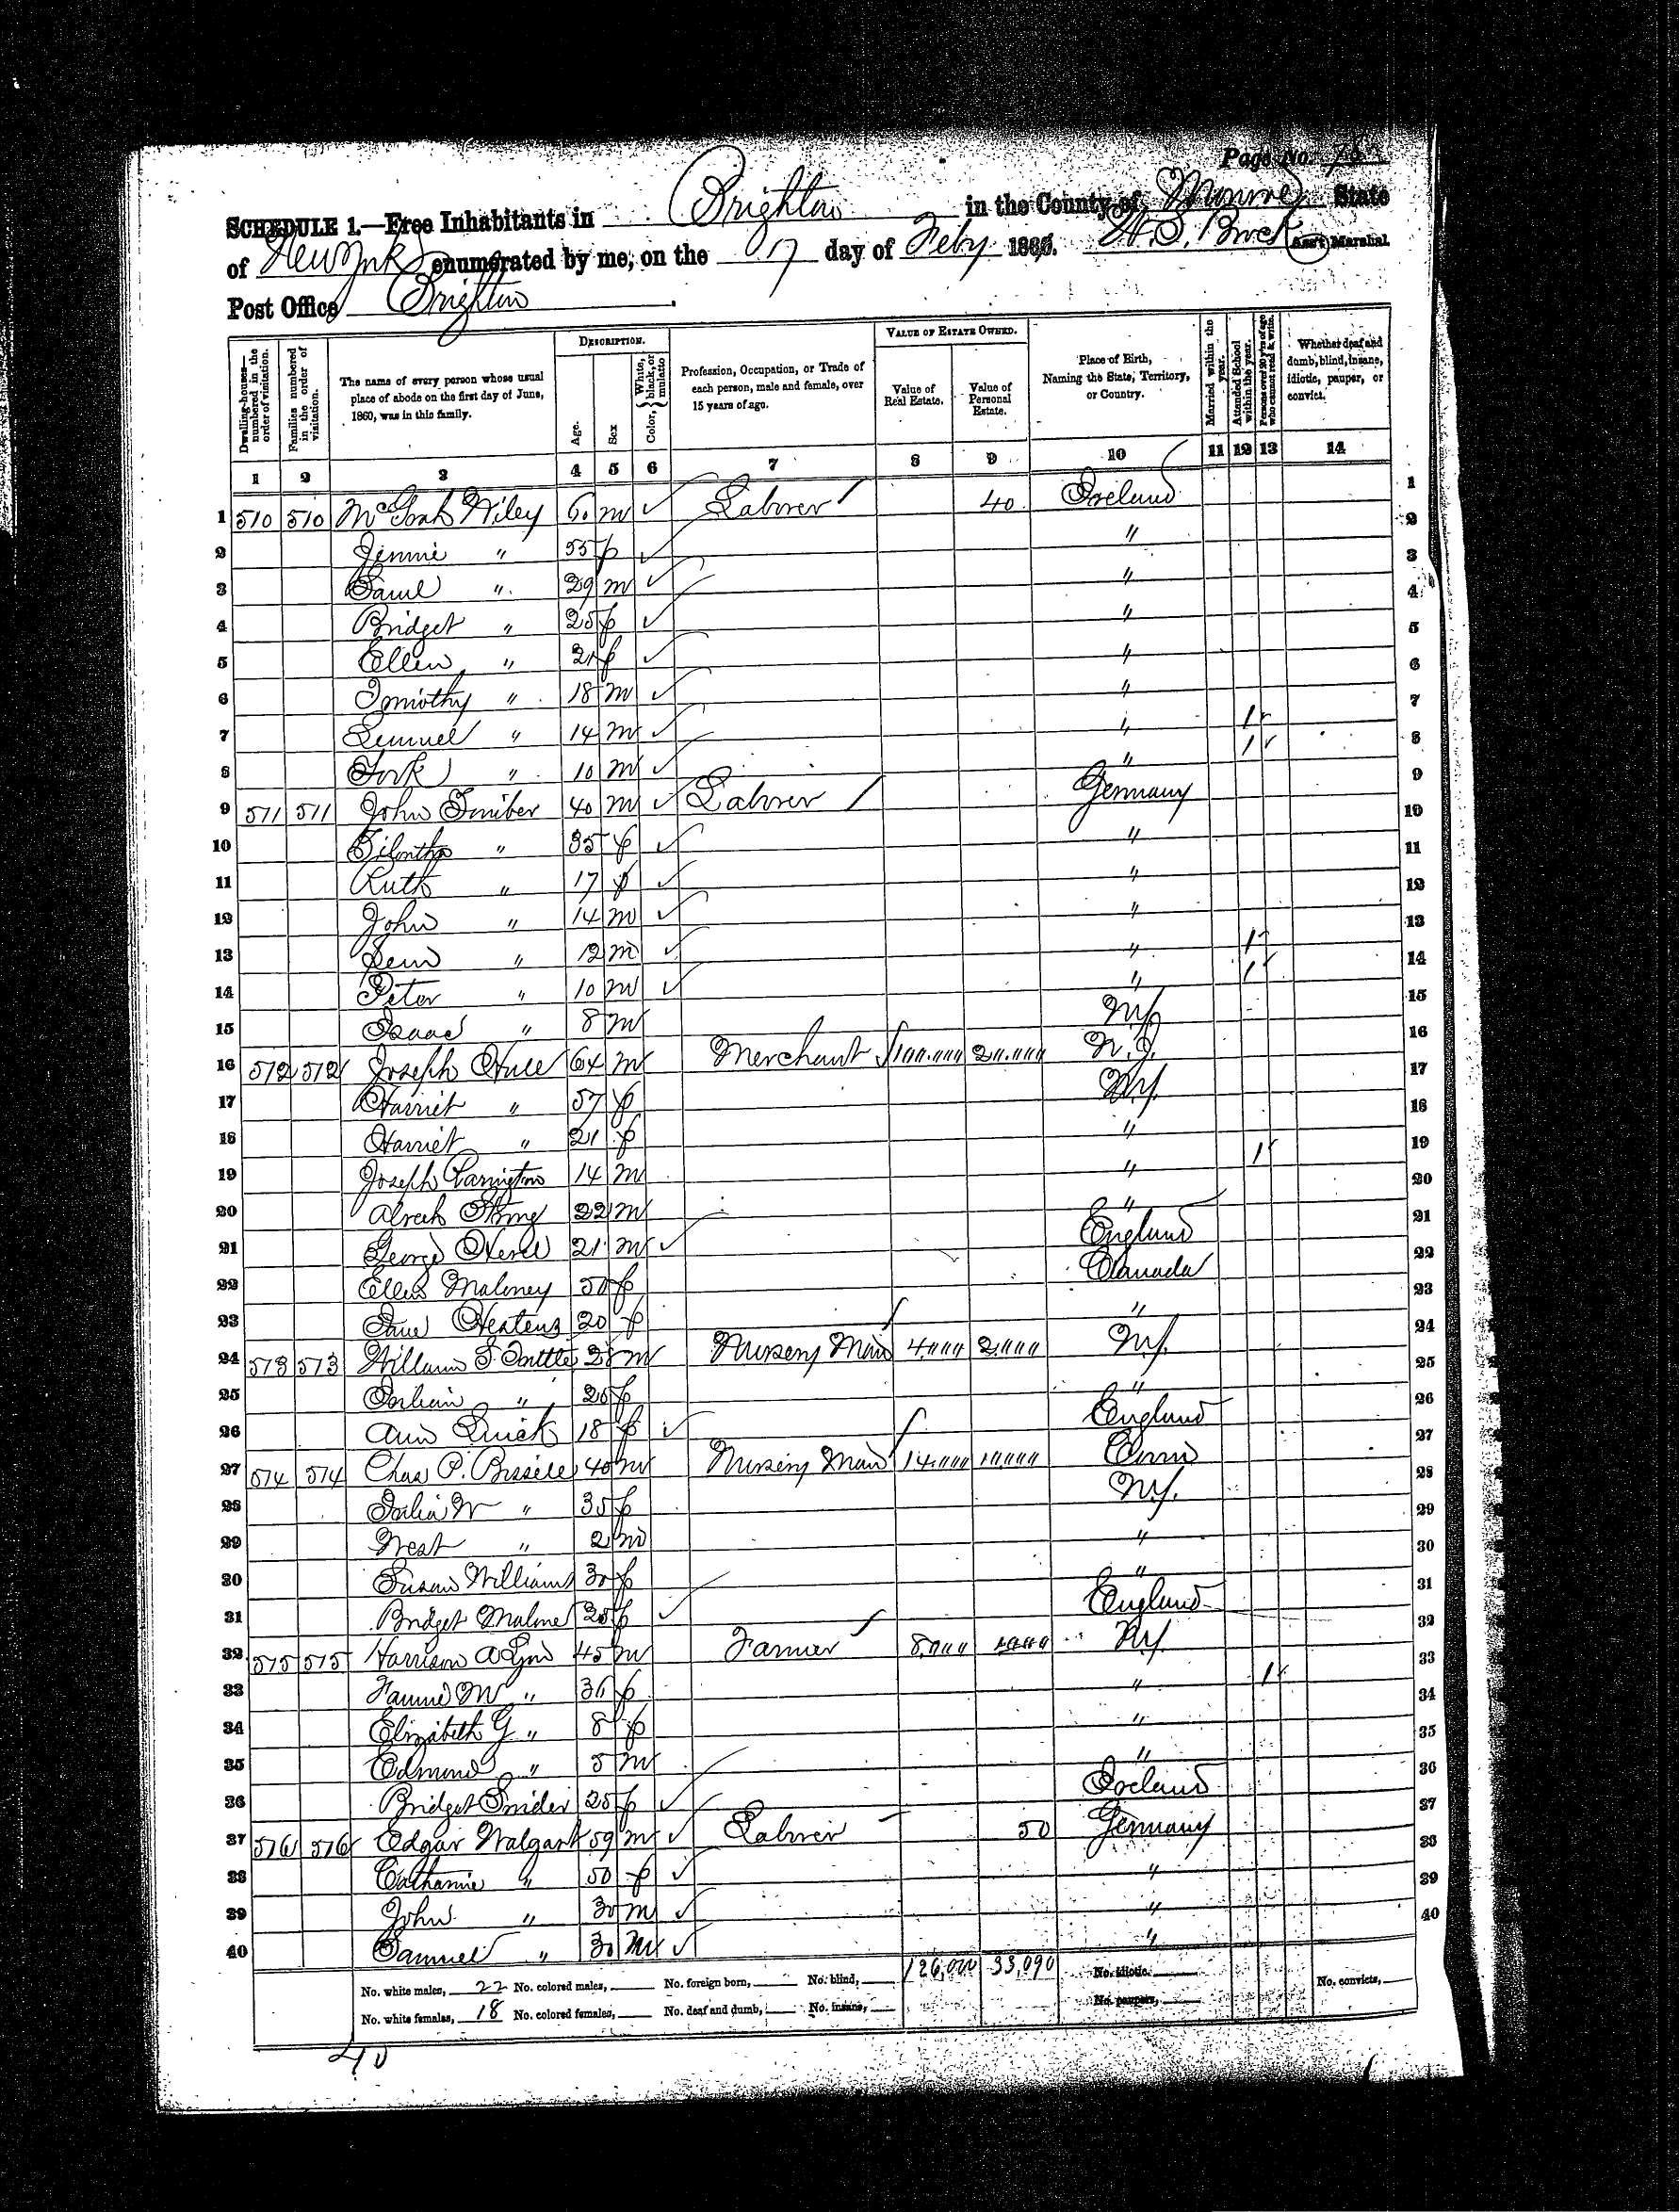 Page No.
SCHEDULE 1.—Free Inhabitants in Brighton in the County of Monroe State
of New York enumerated by me, on the 17 day of Feby 186 . Ass't Marshal.
Post Office Brighton
Dwelling-houses—numbered in the order of visitation.
Families numbered in the order of visitation.
The name of every person whose usual place of abode on the first day of June, 1860, was in this family.
DESCRIPTION.
Age.
Sex
Color, White, black, or mulatto
Profession, Occupation, or Trade of each person, male and female, over 15 years of age.
VALUE OF ESTATE OWNED.
Value of Real Estate.
Value of Personal Estate.
Place of Birth, Naming the State, Territory, or Country.
Married within the year.
Attended School within the year.
Persons over 20 y'rs of age who cannot read & write.
Whether deaf and dumb, blind, insane, idiotic, pauper, or convict.
1 2 3 4 5 6 7 8 9 10 11 12 13 14
1 510 510 Wiley m Labrer 40 Ireland 1
2 Jennie " 55 f " 2
3 Saml " 29 m " 3
4 Bridget " 25 f " 4
5 Ellen " 21 f " 5
6 Timothy " 18 m " 6
7 Lemuel " 14 m " 1 7
8 " 10 m " 1 8
9 571 511 John 40 m Labrer Germany 9
10 " 35 f " 10
11 Ruth " 17 f " 11
12 John " 14 m " 12
13 " 12 m " 1 13
14 Peter " 10 m " 1 14
15 Isaac " 8 m NY 15
16 572 512 Joseph Hull 64 m Merchant 100.000 20.000 N.J. 16
17 Harriet " 57 f NY. 17
18 Harriet " 21 f " 18
19 Joseph 14 m " 1 19
20 22 m " 20
21 George 21 m England 21
22 Ellen Maloney 50 f Canada 22
23 Jane 20 f " 23
24 573 573 William S. Tuttle 28 m Nursery Man 4,000 2,000 NY. 24
25 " f " 25
26 Ann Quick 18 f England 26
27 574 574 Chas P. Bissell 40 m Nursery Man 14.000 10000 Conn 27
28 Julia W " 35 f NY. 28
29 West " 2 m " 29
30 Susan Williams 30 f " 30
31 Bridget Malone f England 31
32 575 575 Harrison A Lyon 45 m Farmer 8,000 1000 NY. 32
33 Fannie M " 36 f " 1 33
34 Elizabeth G " 8 f " 34
35 Edmond " 5 m " 35
36 Bridget Snider 25 f Ireland 36
37 576 576 Edgar 59 m Labrer 50 Germany 37
38 Catharine " 50 f " 38
39 John " 30 m " 39
40 Samuel " 30 m " 40
126,000 33,090
No. white males, 22 No. colored males, No. foreign born, No. blind, No. idiotic. No. convicts,
No. white females, 18 No. colored females, No. deaf and dumb, No. insane, No. paupers,
40